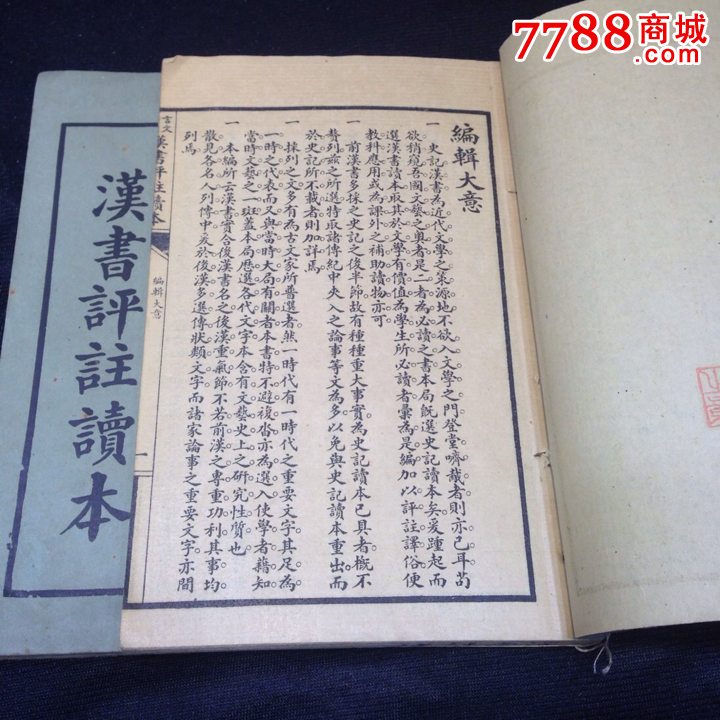 7788商城
漢書評註讀本
言文漢書評註讀本
編輯大意
一
編輯大意
一 史記漢書為近代文學之策源地不欲入文學之門登堂嚌胾者則亦已耳苟
欲稍窺吾國文藝之奥者是二者為必讀之書本局既選史記讀本矣爰踵起而
選漢書讀本取其於文學有價值為學生所必讀者彙為是編加以評註譯俗便
教科應用或為課外之補助讀物亦可
一 前漢書多採之史記之後半節故有種種重大事實為史記讀本已具者概不
贅列茲之所選特取諸傳紀中央入之論事等文為多以免與史記讀本重出而
於史記所不載者則加詳焉
一 採列之文多有為古文家所普選者然一時代有一時代之重要文字其足為
一時之代表而又與當時大局有關者本書特不避複沓亦為選入使學者藉知
當時文藝之一斑蓋本局歷選各代文字本含有文藝史上之研究性質也
一 本編所云漢書實合後漢書名之後漢重氣節不若前漢之專重功利其事均
散見各名人列傳中爰於後漢多選傳狀類文字而諸家論事之重要文字亦間
列焉